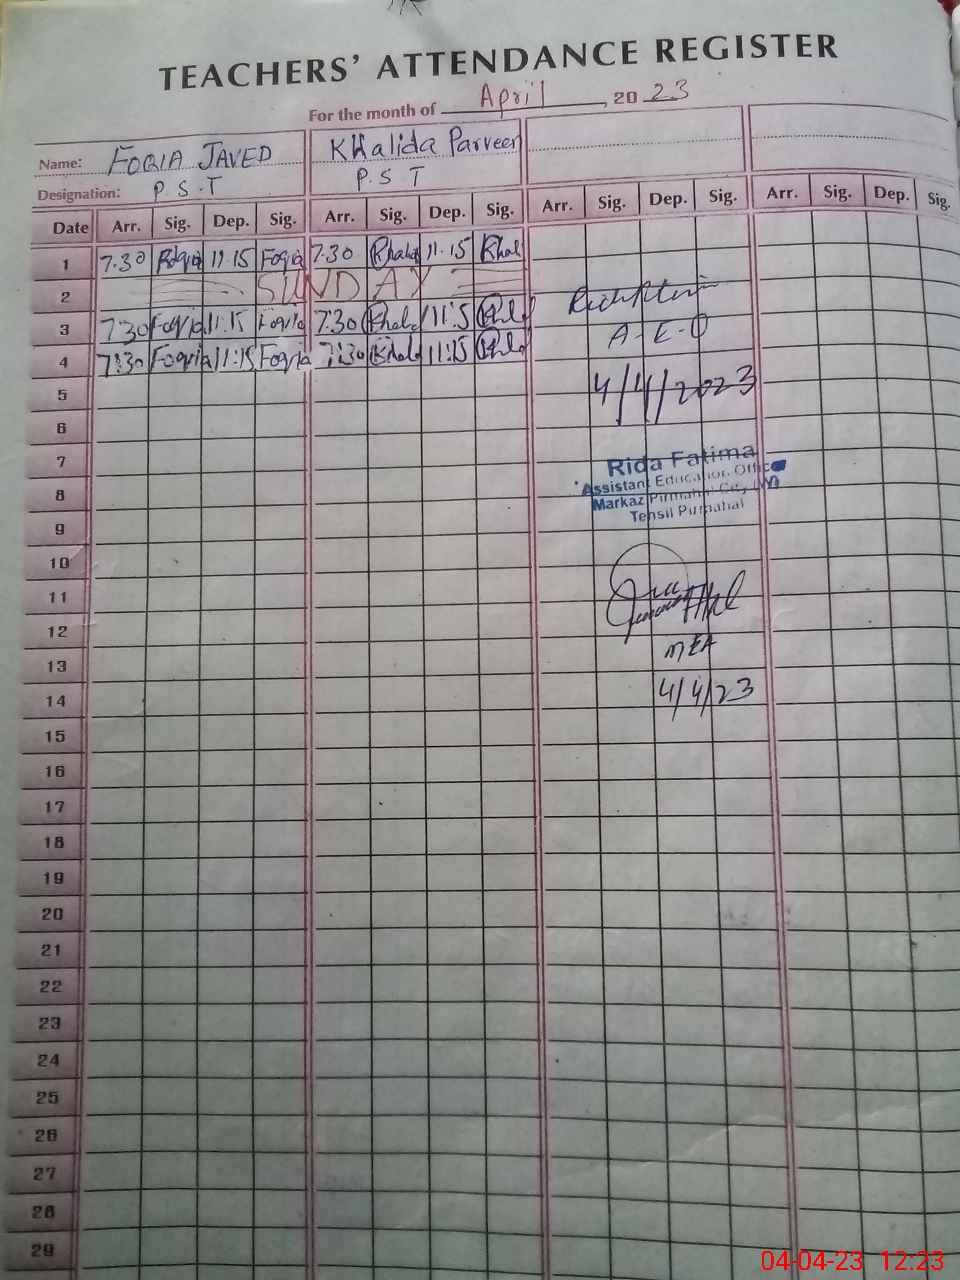 TEACHERS' ATTENDANCE REGISTER
For the month of April, 2023
Name: FOQIA JAVED Khalida Parveen
Designation: P.S.T P.S T
Date Arr. Sig. Dep. Sig. Arr. Sig. Dep. Sig. Arr. Sig. Dep. Sig. Arr. Sig. Dep. Sig.
1 7.30 Foqia 11.15 Foqia 7.30 Khald 11.15 Khal
2 SUNDAY
3 7.30 Foqia 11.15 Foqia 7.30 Khald 11:5
A-E-O
4 7:30 Foqia 11:15 Foqia 7:30 Khald 11:15
5 4/4/2023
6
7 Rida Fatima
8 Assistant Education Office
Markaz Pirmahal City
9 Tehsil Pirmahal
10
11
12
13 MEA
14 4/4/23
15
16
17
18
19
20
21
22
23
24
25
26
27
28
29
04-04-23 12:23